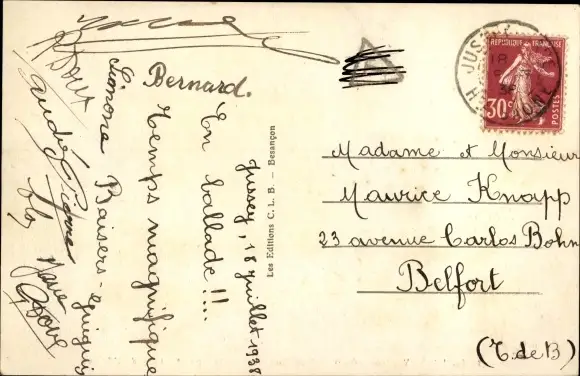 Jussey, 18 juillet 1938
En ballade !!..
Temps magnifique
Simona Baisers - Guigui
Bernard.
André
Les Editions C. L. B. – Besançon
JUSSEY
Hte SAONE
REPUBLIQUE FRANÇAISE
30c
POSTES
Madame et Monsieur
Maurice Knapp
23 avenue Carlos Bohn
Belfort
(T. de B)